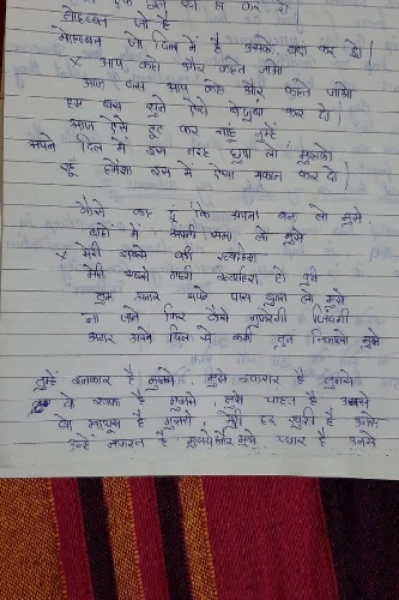 मोहब्बत जो है
मोहब्बत जो दिल में है उसको बयां कर दो।
x आप कहो और कहते जाओ
आज बस आप कहो और कहते जाओ
हम बस सुने ऐसे बेजुबां कर दो।
आज ऐसे टूट कर चाहूं तुम्हें
अपने दिल में इस तरह छुपा लो मुझको
रहूं हमेशा इस में ऐसा मकान कर दो।
कैसे कह दूं कि अपना बना लो मुझे
बाहों में अपनी समा लो मुझे
x मेरी सबसे बड़ी ख्वाहिश
मेरी सबसे बड़ी ख्वाहिश हो पूरी
तुम अगर अपने पास बुला लो मुझे
ना जाने फिर कैसे गुजरेगी जिंदगी
अगर अपने दिल से कभी तुम निकालो मुझे
तुम्हें इनकार है मुझसे, मुझे इकरार है तुमसे
वो खफा है मुझसे, मुझे चाहत है उनसे
वो मायूस है मुझसे मेरी हर खुशी है उनसे
उन्हें नफरत है मुझसे और मुझे प्यार है उनसे